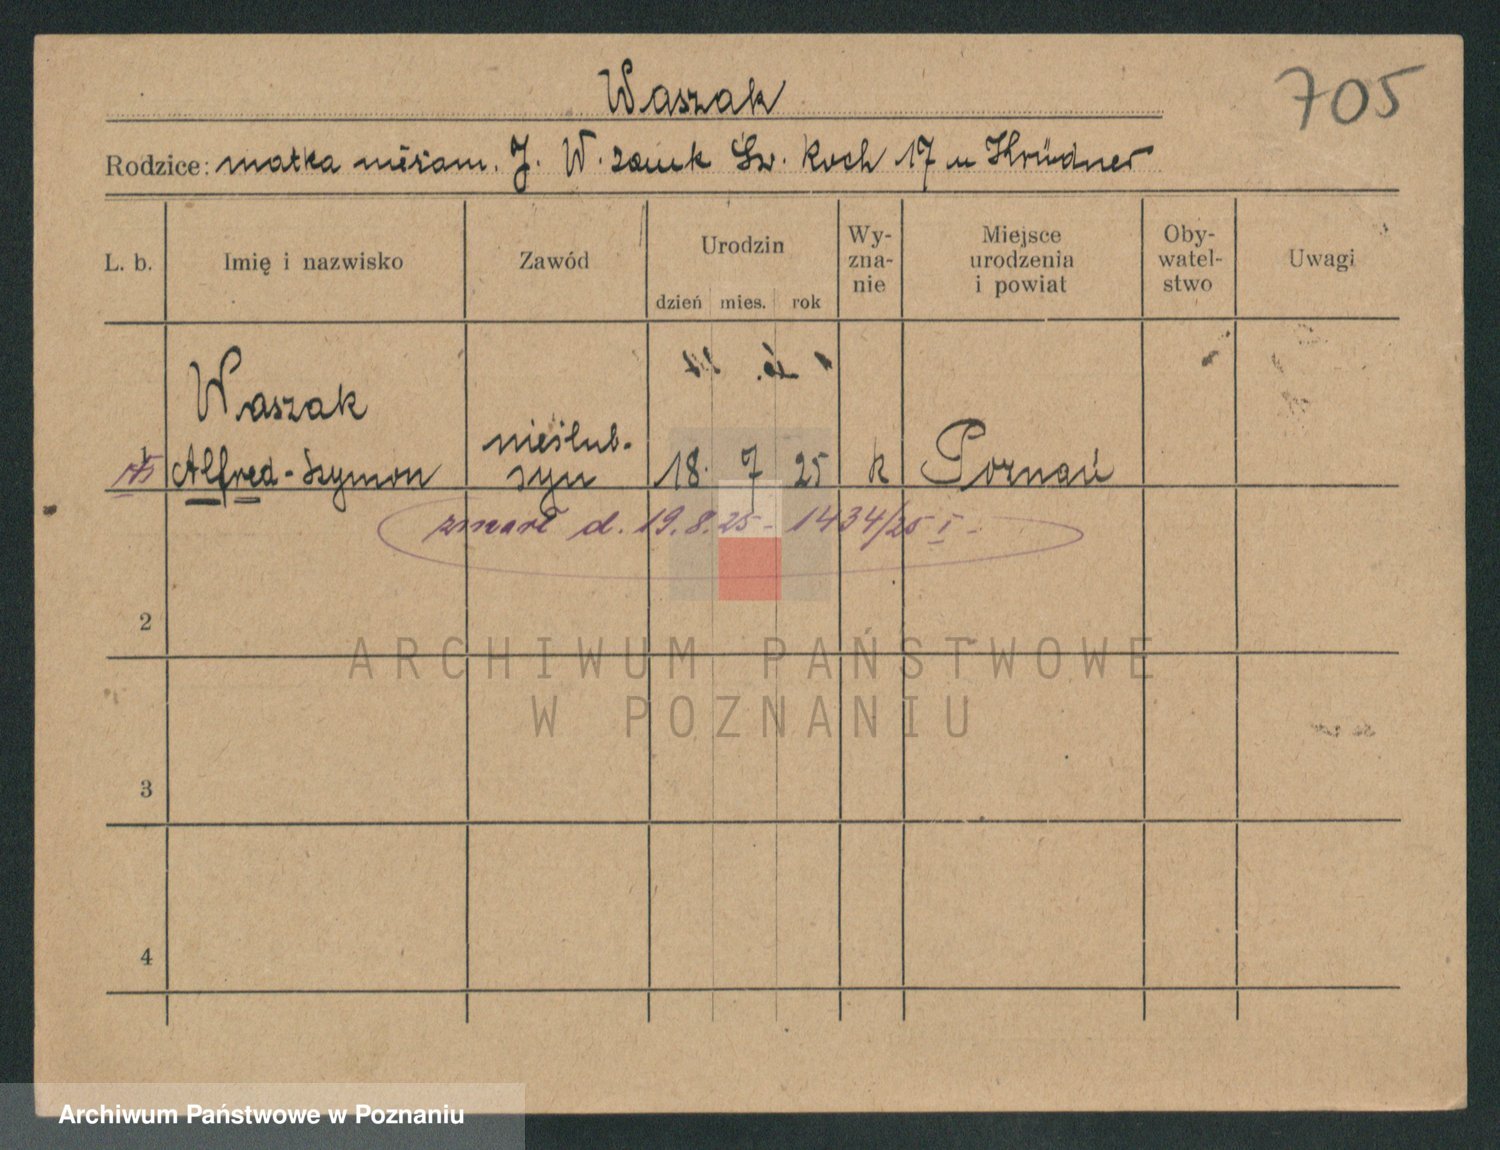 Waszak
705
Rodzice: matka nieśam. J. W. Św. Roch 17 u
L. b. Imię i nazwisko Zawód Urodzin dzień mies. rok Wy-zna-nie Miejsce urodzenia i powiat Oby-watel-stwo Uwagi
Waszak
Alfred-Szymon nieślub. syn 18. 7 25 k Poznań
zmarł d. 19.8.25 - 1434/25 I -
2
ARCHIWUM PAŃSTWOWE
W POZNANIU
3
4
Archiwum Państwowe w Poznaniu